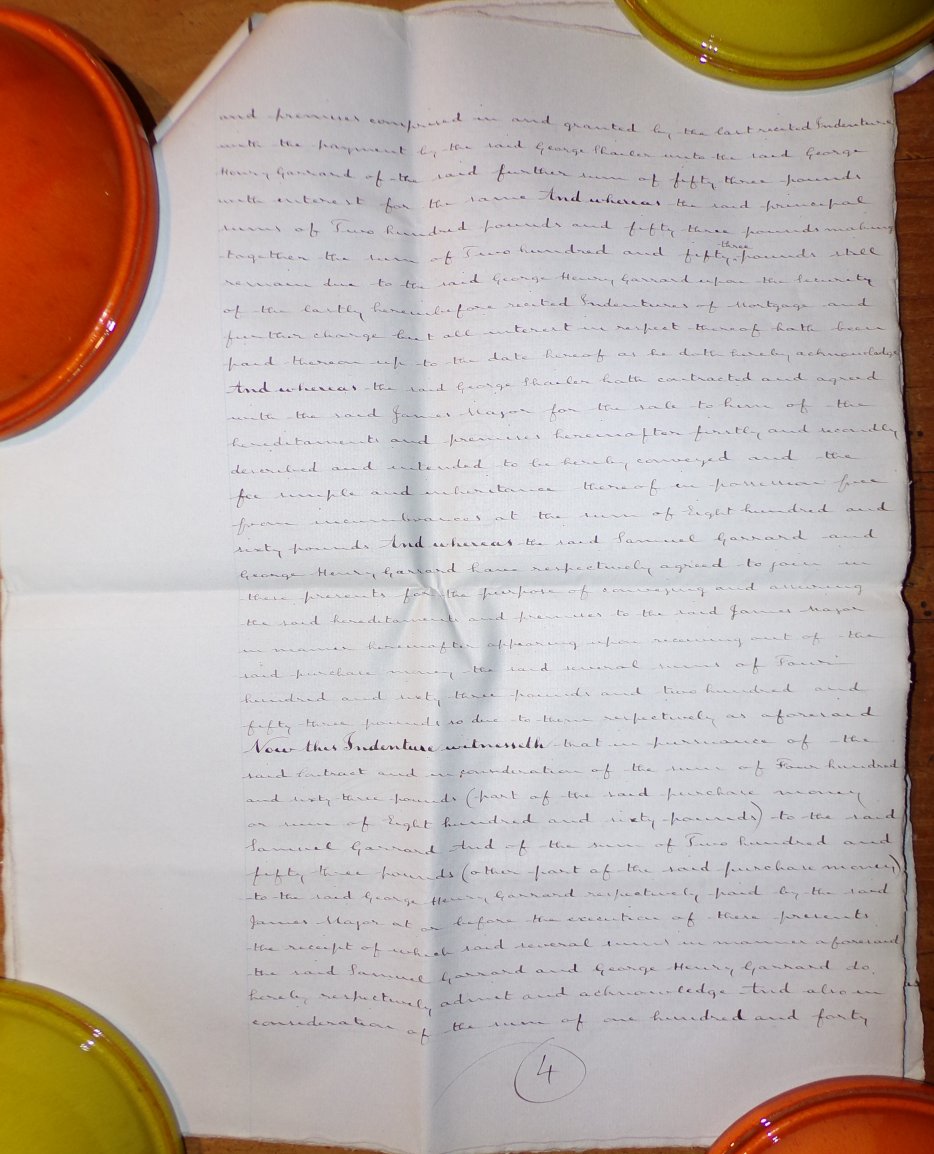 and premises comprised in and granted by the last recited Indenture
with the payment by the said George Shailer unto the said George
Henry Garrard of the said further sum of fifty three pounds
with interest for the same And whereas the said principal
sums of Two hundred pounds and fifty three pounds making
together the sum of Two hundred and fifty three pounds still
remain due to the said George Henry Garrard upon the Security
of the lastly hereinbefore recited Indentures of Mortgage and
further charge but all interest in respect thereof hath been
paid thereon up to the date hereof as he doth hereby acknowledge
And whereas the said George Shailer hath contracted and agreed
with the said James Major for the sale to him of the
hereditaments and premises hereinafter firstly and secondly
described and intended to be hereby conveyed and the
fee simple and inheritance thereof in possession free
from incumbrances at the sum of Eight hundred and
sixty pounds And whereas the said Samuel Garrard and
George Henry Garrard have respectively agreed to join in
these presents for the purpose of conveying and assuring
the said hereditaments and premises to the said James Major
in manner hereinafter appearing upon receiving out of the
said purchase money the said several sums of Four
hundred and sixty three pounds and two hundred and
fifty three pounds so due to them respectively as aforesaid
Now this Indenture witnesseth that in pursuance of the
said Contract and in consideration of the sum of Four hundred
and sixty three pounds (part of the said purchase money
or sum of Eight hundred and sixty pounds) to the said
Samuel Garrard And of the sum of Two hundred and
fifty three pounds (other part of the said purchase money)
to the said George Henry Garrard respectively paid by the said
James Major at or before the execution of these presents
the receipt of which said several sums in manner aforesaid
the said Samuel Garrard and George Henry Garrard do
hereby respectively admit and acknowledge And also in
consideration of the sum of one hundred and forty
4